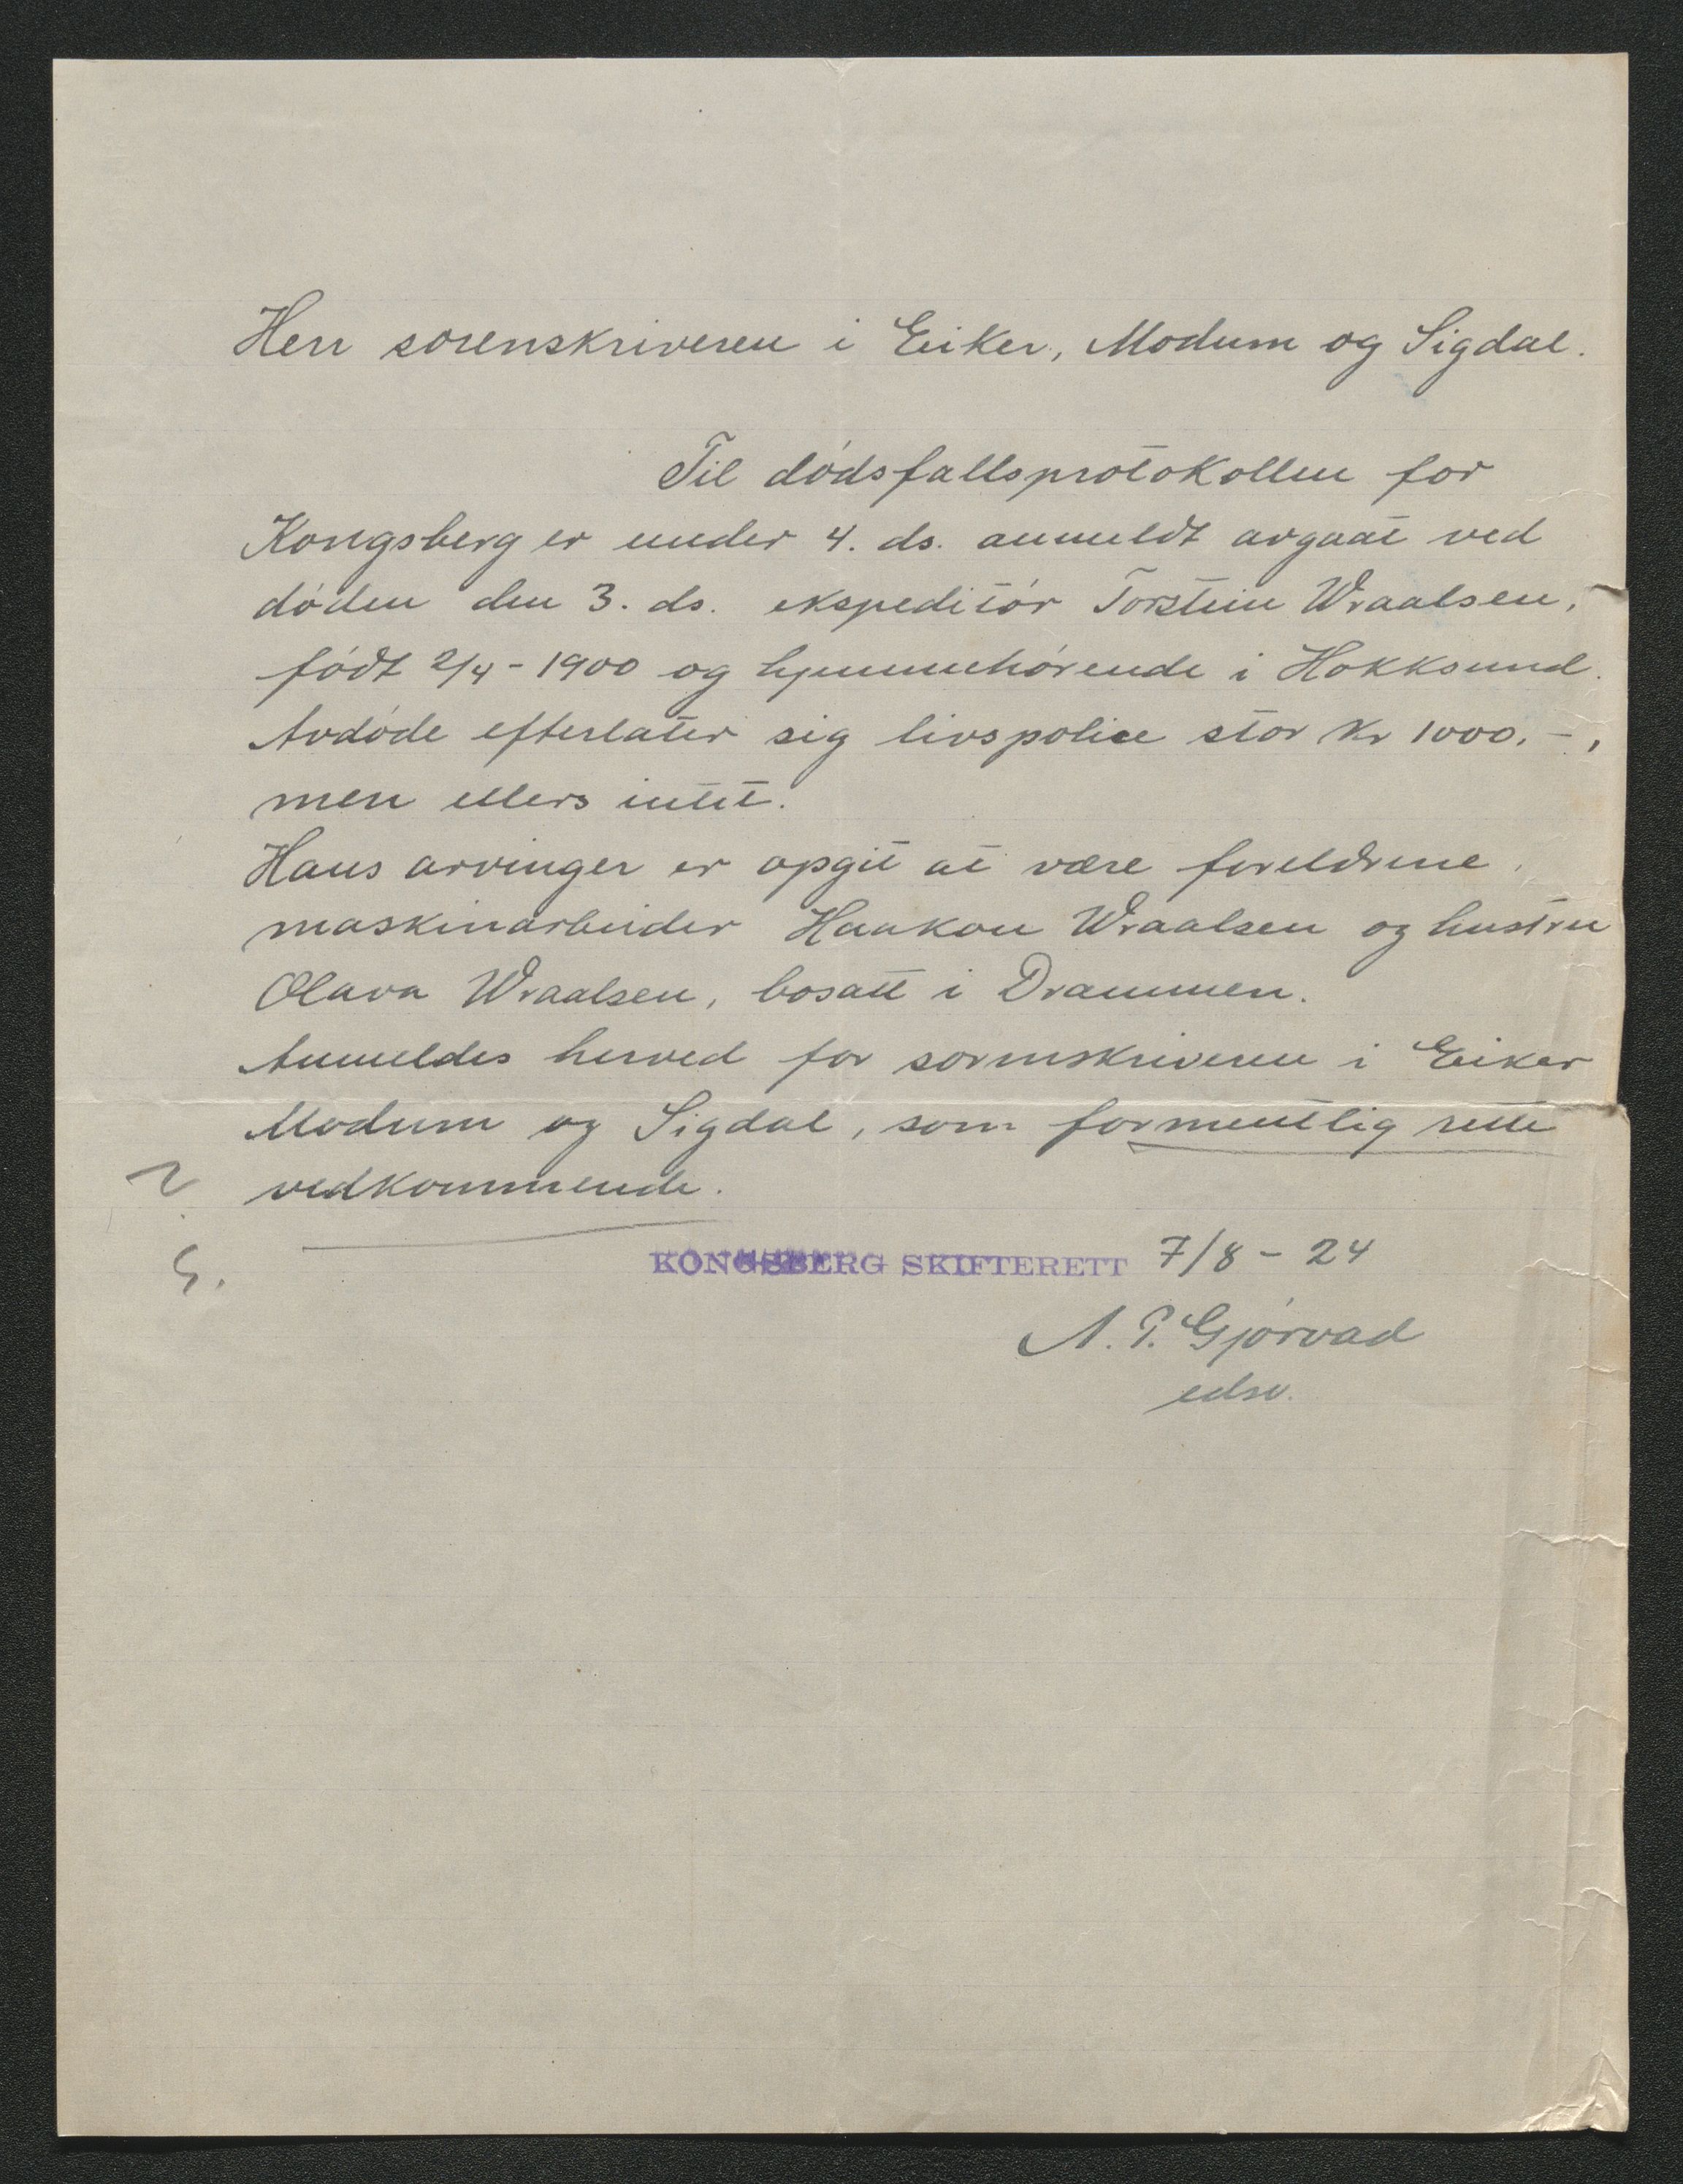 Herr sorenskriveren i Eiker, Modum og Sigdal.
Til dødsfallsprotokollen for
Kongsberg er under 4. ds. anmeldt avgaat ved
døden den 3. ds. ekspeditør Torstein Wraalsen,
født 2/4 - 1900 og hjemmehørende i Hokksund.
Avdøde efterlater sig livspolice stor kr 1000.-,
men ellers intet.
Hans arvinger er opgit at være forældrene,
maskinarbeider Haakon Wraalsen og hustru
Olava Wraalsen, bosatt i Drammen.
Anmeldes herved for sorenskriveren i Eiker
Modum og Sigdal, som formentlig rette
? vedkommende.
KONGSBERG SKIFTERETT 7/8 - 24
N. P. Gjørvad
edsv.